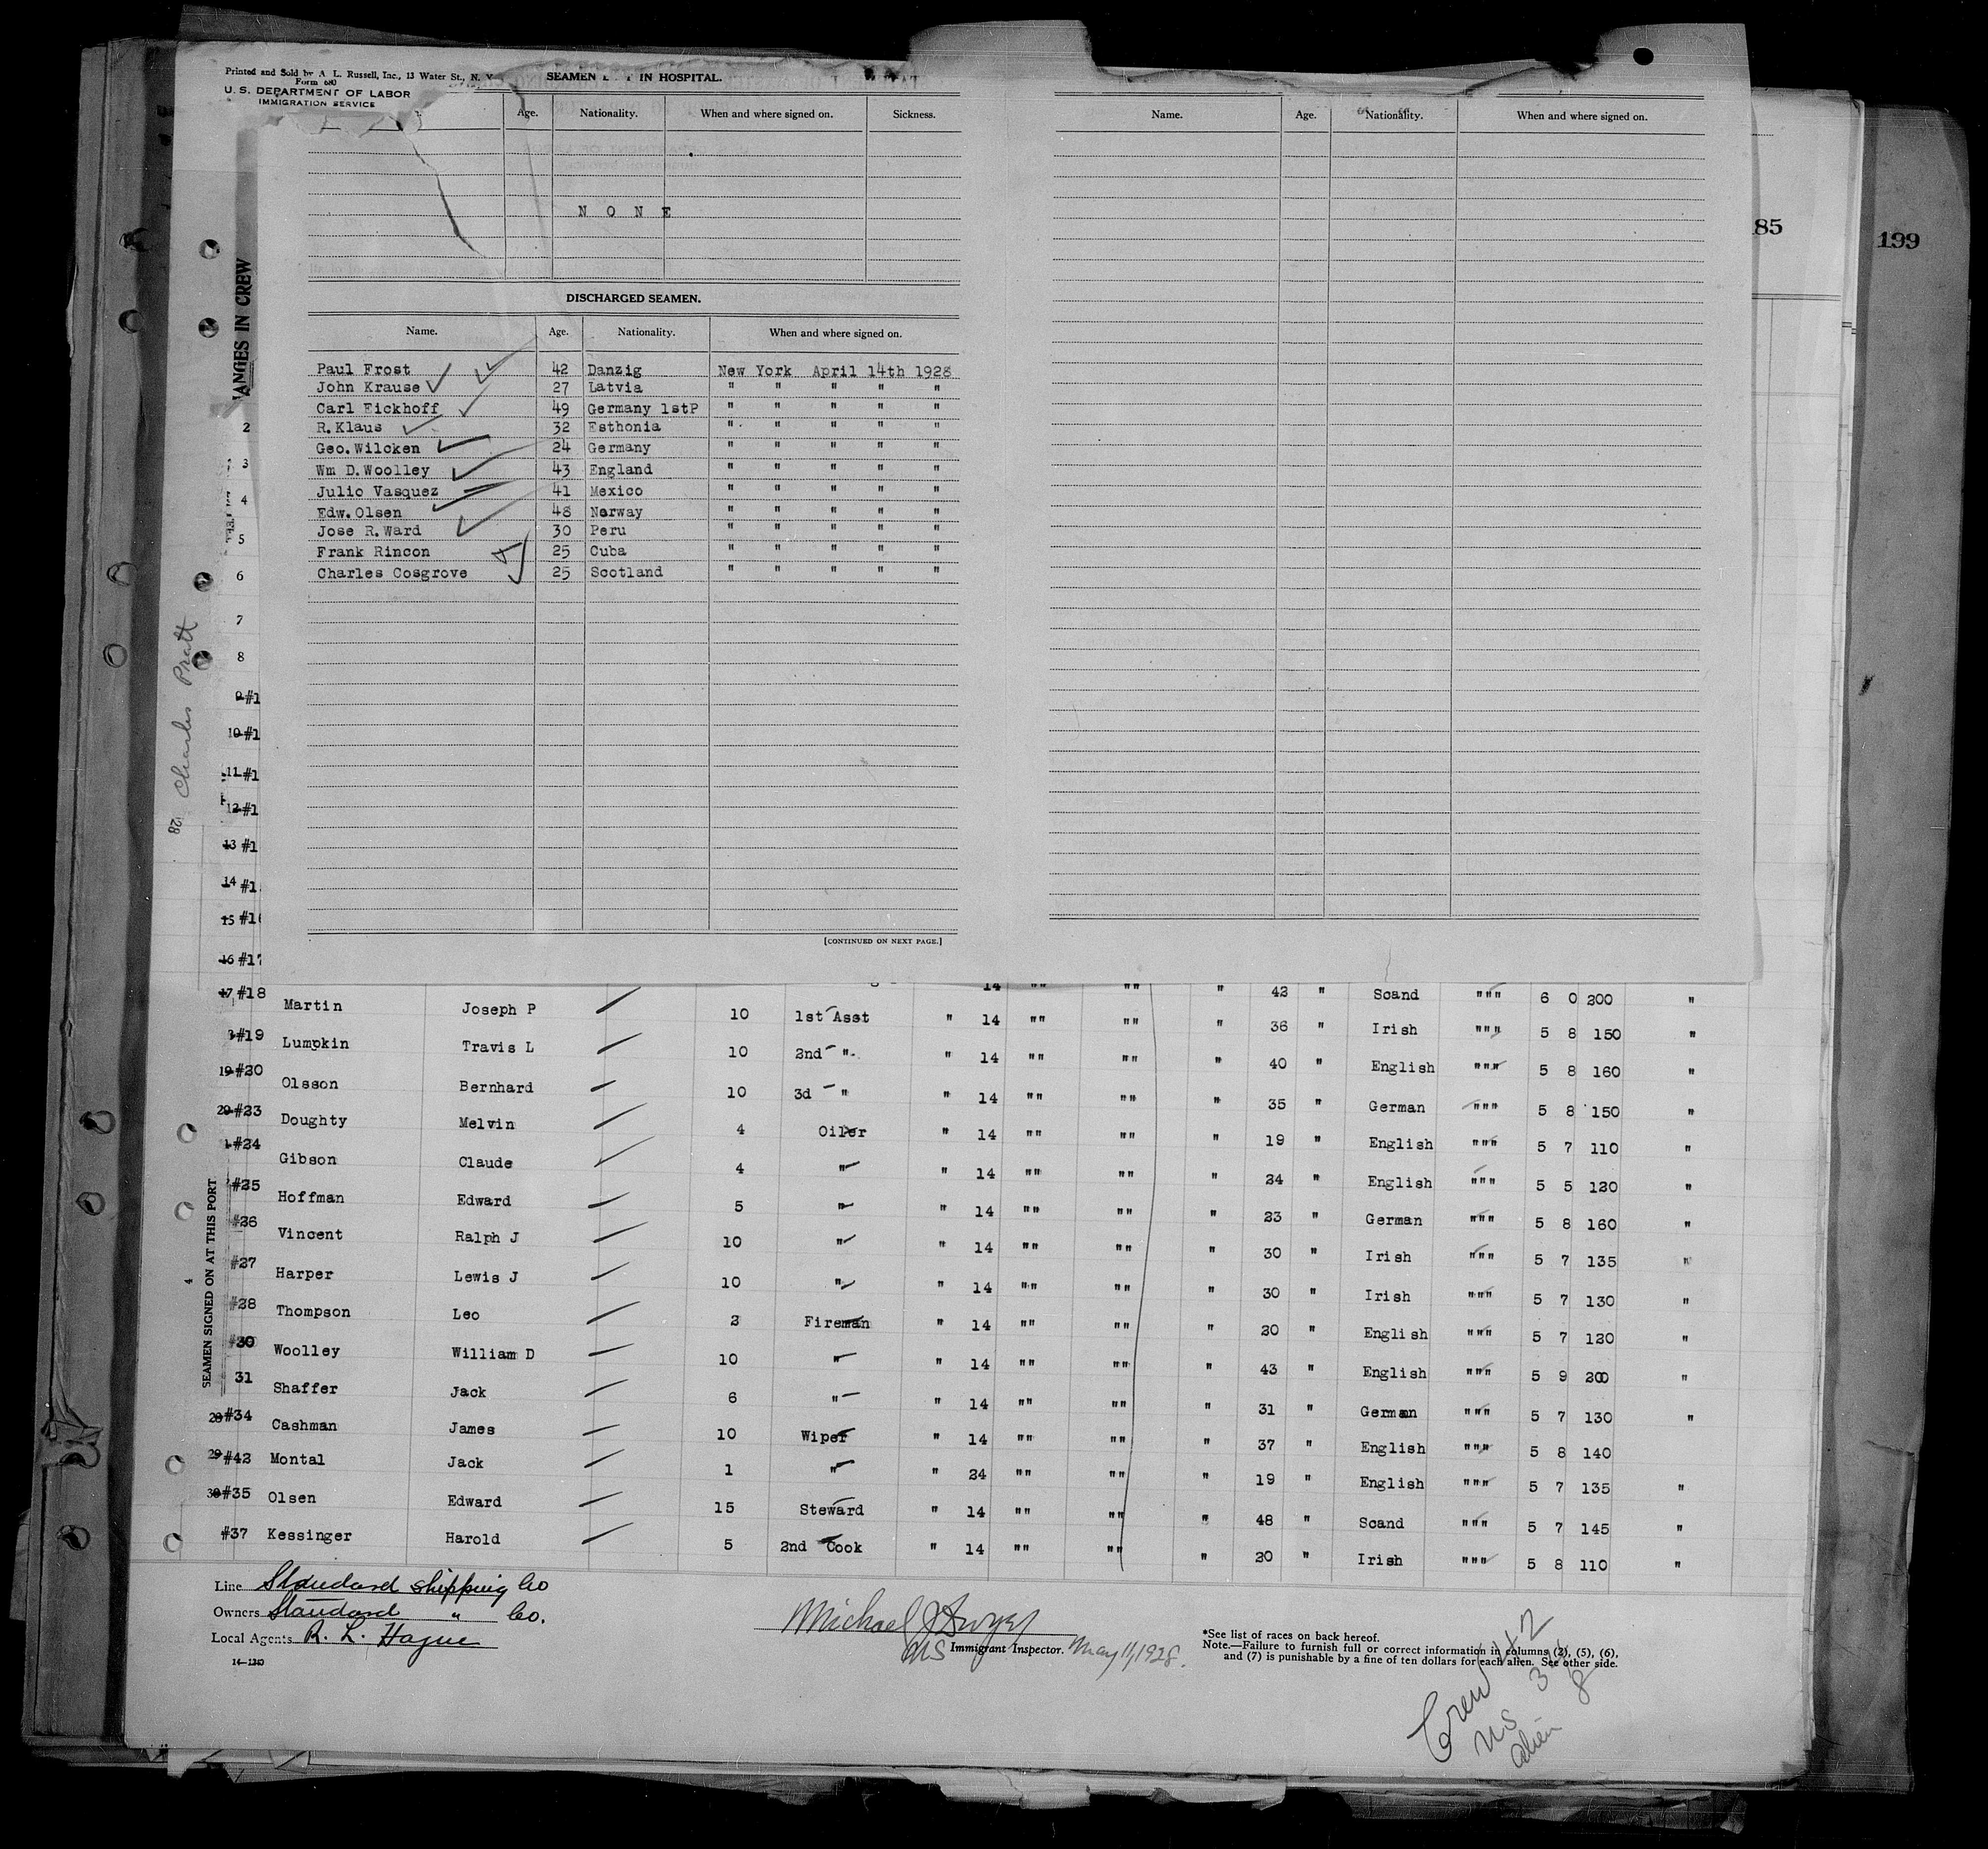 Printed and Sold by A. L. Russell, Inc., 13 Water St., N. Y.
Form 680
U. S. DEPARTMENT OF LABOR
IMMIGRATION SERVICE
SEAMEN L T IN HOSPITAL.
Age. Nationality. When and where signed on. Sickness.
N O N E
DISCHARGED SEAMEN.
Name. Age. Nationality. When and where signed on.
Paul Frost 42 Danzig New York April 14th 1928
John Krause 27 Latvia " " " " "
Carl Eickhoff 49 Germany 1stP " " " " "
R. Klaus 32 Esthonia " " " " "
Geo. Wilcken 24 Germany " " " " "
Wm D. Woolley 43 England " " " " "
Julio Vasquez 41 Mexico " " " " "
Edw. Olsen 48 Norway " " " " "
Jose R. Ward 30 Peru " " " " "
Frank Rincon 25 Cuba " " " " "
Charles Cosgrove 25 Scotland " " " " "
[CONTINUED ON NEXT PAGE.]
Name. Age. Nationality. When and where signed on.
85
199
ANGES IN CREW
2
3
4
5
6
7
8
9 #1
10 #1
11 #1
12 #1
13 #1
14 #1
15 #1
16 #17
Charles Pratt
28
SEAMEN SIGNED ON AT THIS PORT
4
14 "" "" " 42 " Scand """ 6 0 200 "
17 #18 Martin Joseph P 10 1st Asst " 14 "" "" " 36 " Irish """ 5 8 150 "
#19 Lumpkin Travis L 10 2nd " " 14 "" "" " 40 " English """ 5 8 160 "
19 #20 Olsson Bernhard 10 3d " " 14 "" "" " 35 " German """ 5 8 150 "
20 #23 Doughty Melvin 4 Oiler " 14 "" "" " 19 " English """ 5 7 110 "
#24 Gibson Claude 4 " " 14 "" "" " 24 " English """ 5 5 120 "
#25 Hoffman Edward 5 " " 14 "" "" " 23 " German """ 5 8 160 "
#26 Vincent Ralph J 10 " " 14 "" "" " 30 " Irish """ 5 7 135 "
#27 Harper Lewis J 10 " " 14 "" "" " 30 " Irish """ 5 7 130 "
#28 Thompson Leo 2 Fireman " 14 "" "" " 20 " English """ 5 7 120 "
#30 Woolley William D 10 " " 14 "" "" " 43 " English """ 5 9 200 "
31 Shaffer Jack 6 " " 14 "" "" " 31 " German """ 5 7 130 "
28 #34 Cashman James 10 Wiper " 14 "" "" " 37 " English """ 5 8 140
29 #42 Montal Jack 1 " " 24 "" "" " 19 " English """ 5 7 135 "
30 #35 Olsen Edward 15 Steward " 14 "" "" " 48 " Scand """ 5 7 145 "
#37 Kessinger Harold 5 2nd Cook " 14 "" "" " 20 " Irish """ 5 8 110 "
Line Standard Shipping Co
Owners Standard " Co.
Local Agents R. L. Hague
14—1240
Michael J Dwyer
US Immigrant Inspector. May 11, 1928.
*See list of races on back hereof.
Note.—Failure to furnish full or correct information in columns (2), (5), (6),
and (7) is punishable by a fine of ten dollars for each alien. See other side.
Crew 42
US 34
alien 8